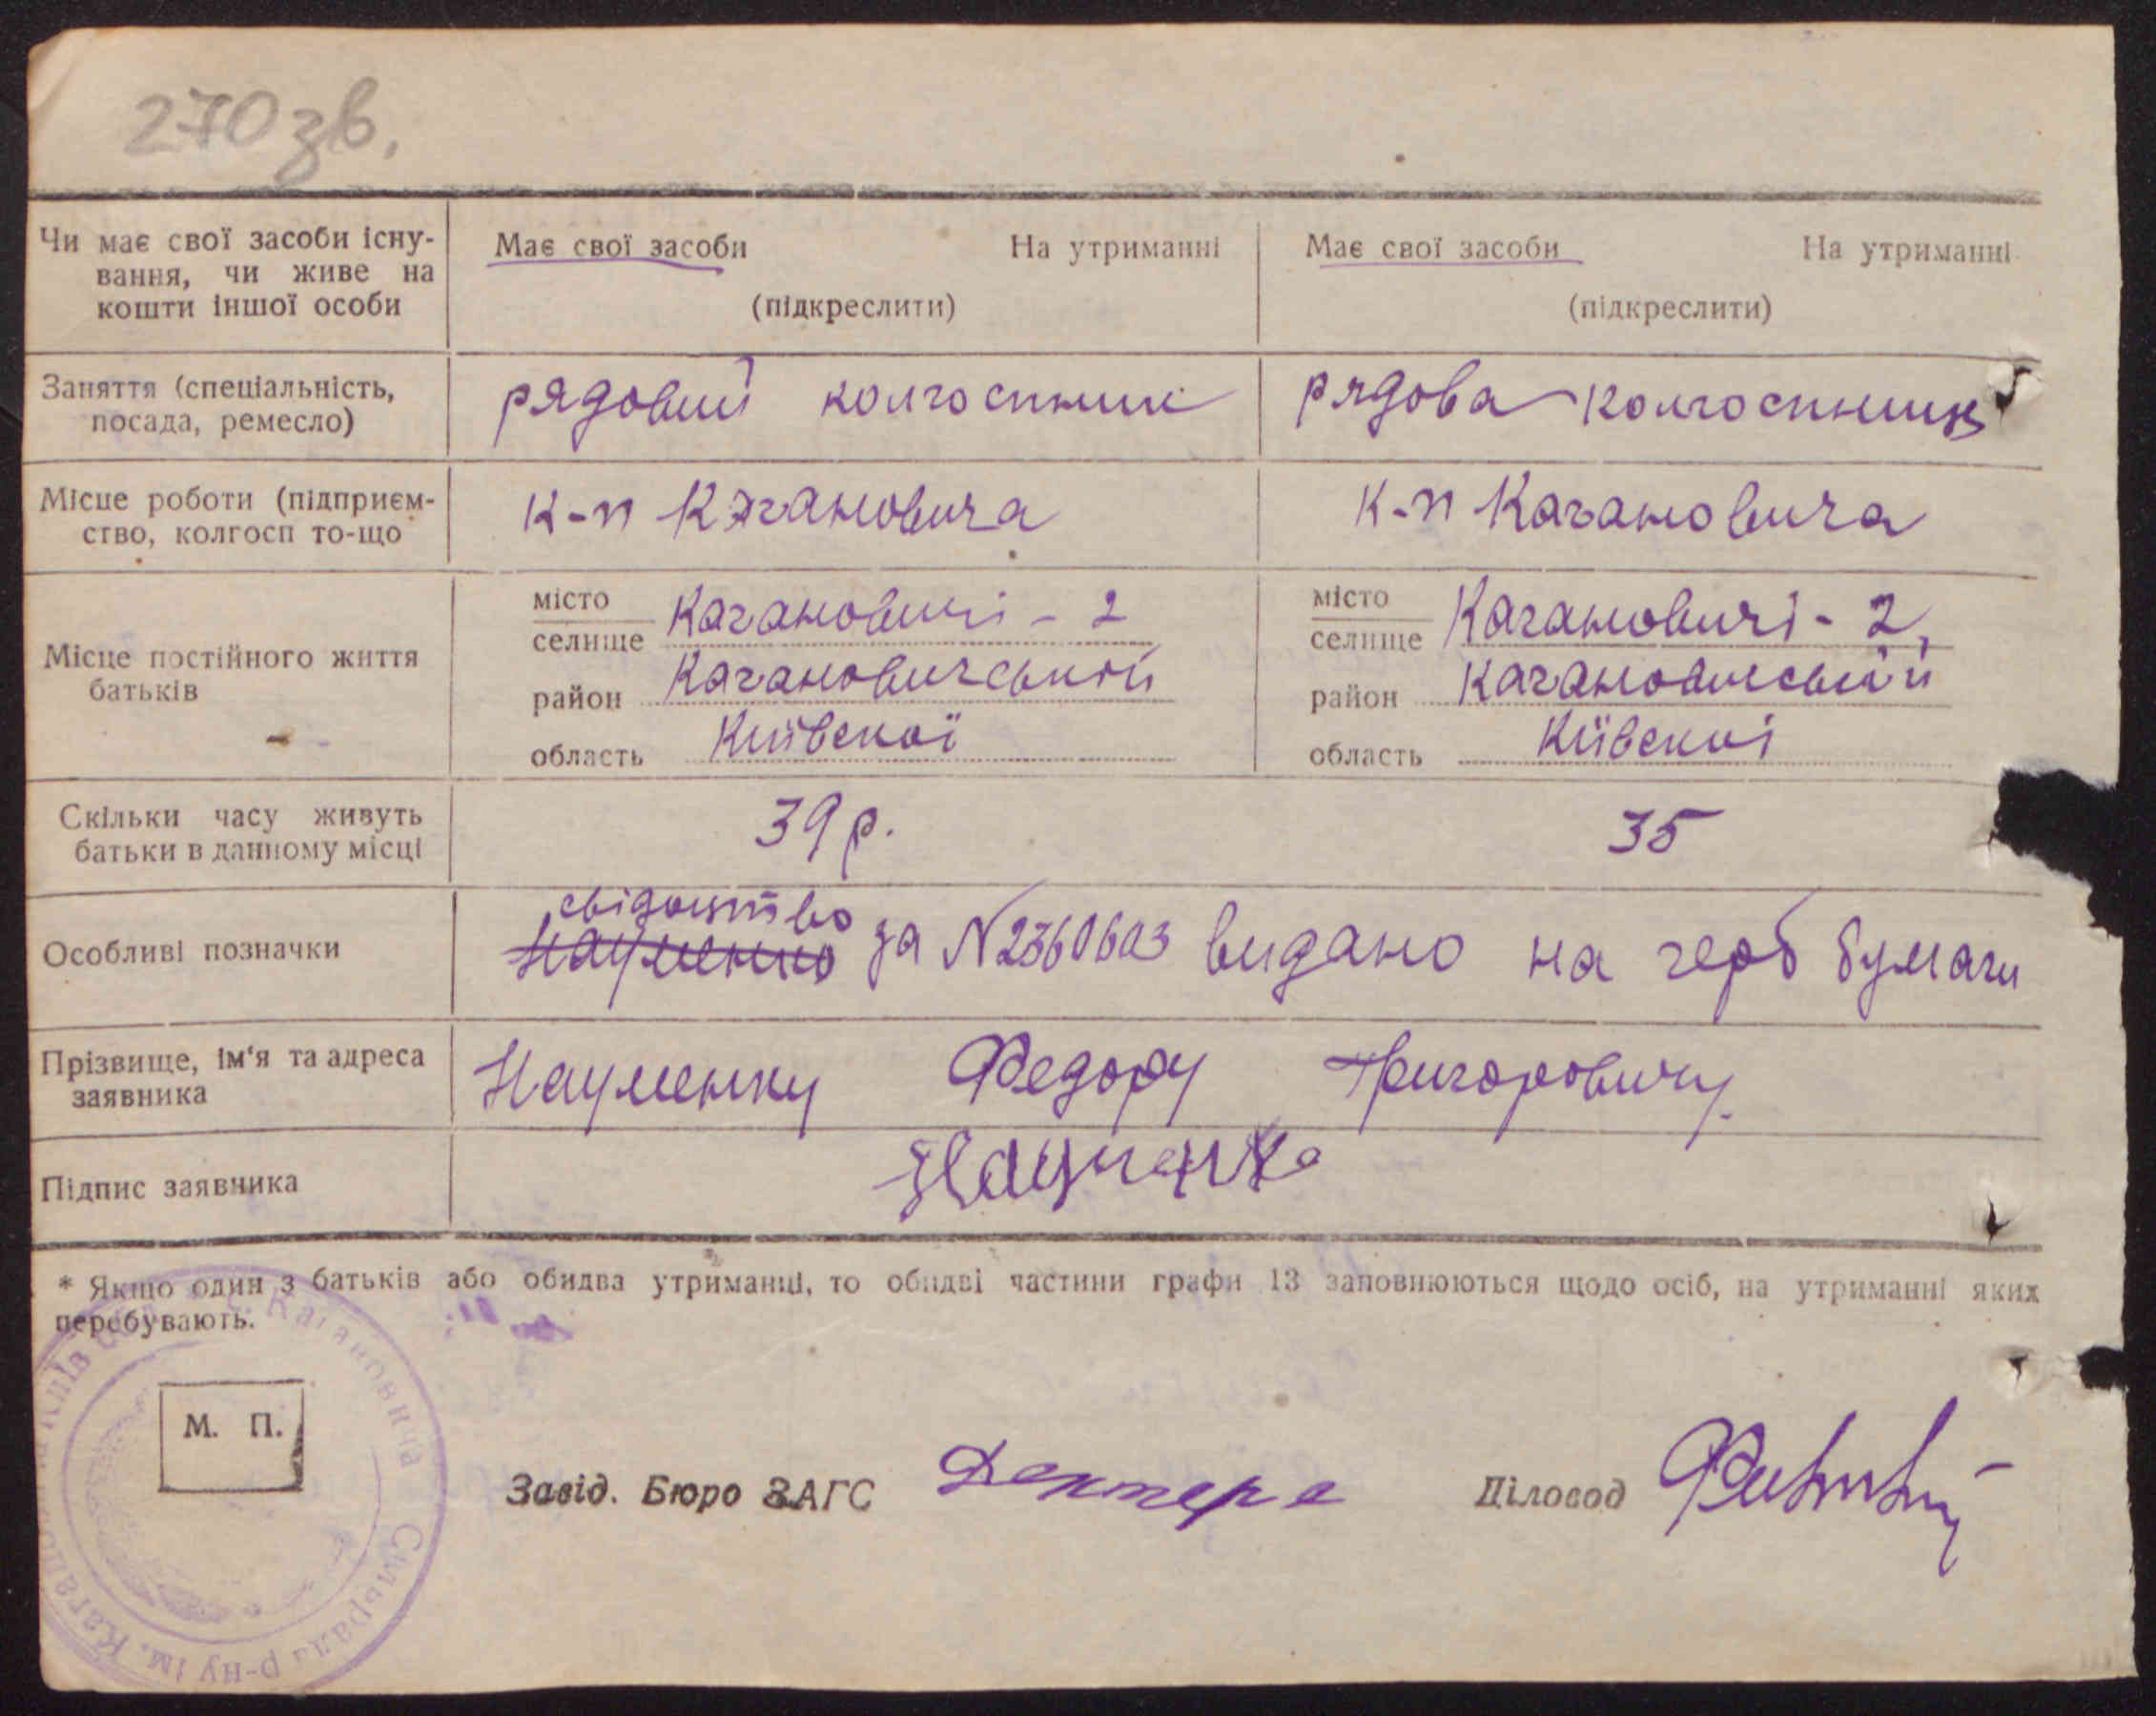 270 зв.
Чи має свої засоби існу-
вання, чи живе на
кошти іншої особи
Має свої засоби На утриманні
(підкреслити)
Має свої засоби На утриманні
(підкреслити)
Заняття (спеціальність,
посада, ремесло)
рядовий колгоспник
рядова колгоспниц
Місце роботи (підприєм-
ство, колгосп то-що
к-п Кагановича
к-п Кагановича
Місце постійного життя
батьків
місто
селище Кагановичі - 2
район Кагановичський
область Київскої
місто
селище Кагановичі - 2,
район Кагановичський
область Київскої
Скільки часу живуть
батьки в данному місці
39 р.
35
Особливі позначки
свідоцтво
Науменко за N2360603 видано на герб бумаги
Прізвище, ім'я та адреса
заявника
Науменку Федору Григоровичу
Підпис заявника
Науменко
* Якщо один з батьків або обидва утриманці, то обидві частини графи 13 заповнюються щодо осіб, на утриманні яких
перебувають.
М. П.
Завід. Бюро ЗАГС
Діловод
Кагановича Сільрада р-ну ім. Каганов